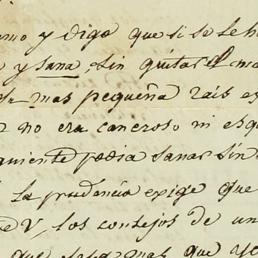 mo y digo que si se le h
y sana, sin quitar el m
mas pequeña rais es
no era canceroso ni es
quiente podia sanar sin
La prudencia exige que
de V, los consejos de un
que mas que